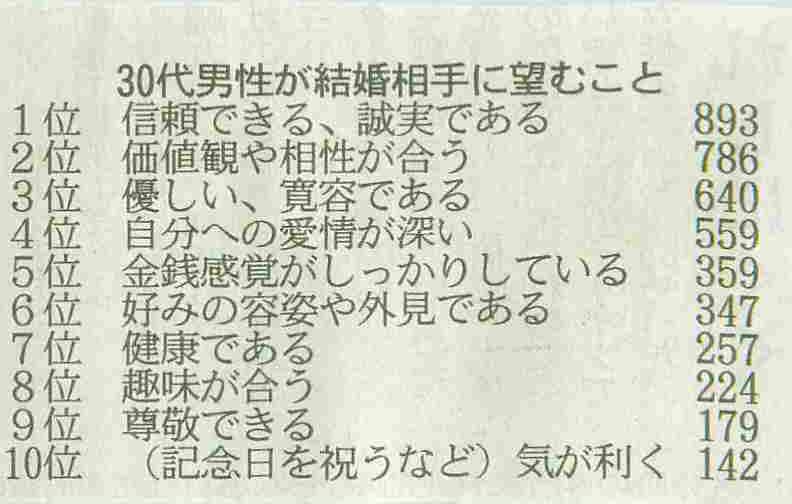 30代男性が結婚相手に望むこと
1位 信頼できる、誠実である 893
2位 価値観や相性が合う 786
3位 優しい、寛容である 640
4位 自分への愛情が深い 559
5位 金銭感覚がしっかりしている 359
6位 好みの容姿や外見である 347
7位 健康である 257
8位 趣味が合う 224
9位 尊敬できる 179
10位 （記念日を祝うなど）気が利く 142